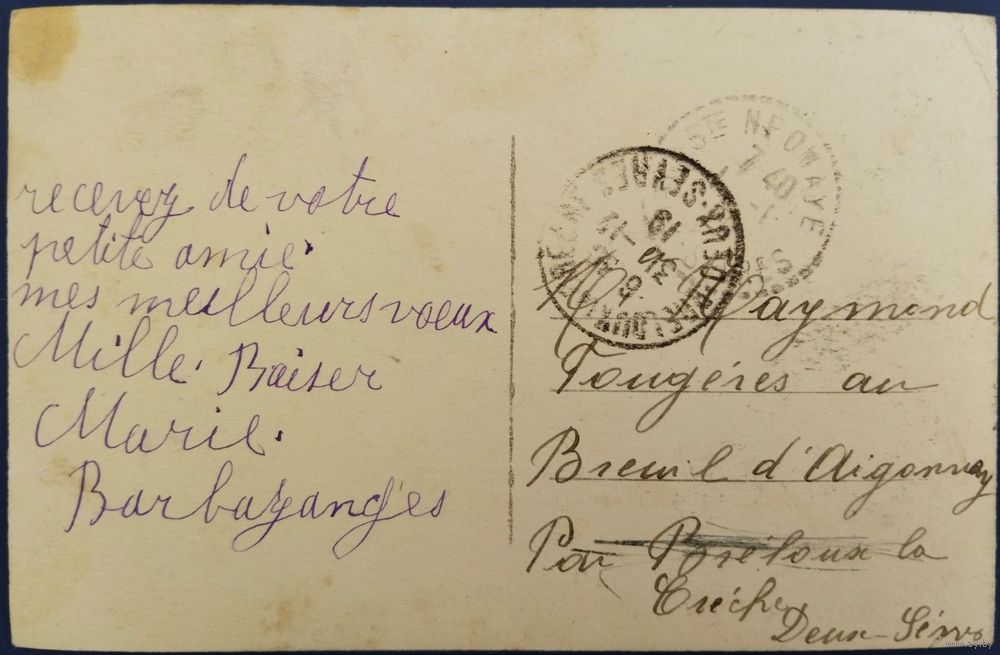 recevez de votre
petite amie.
mes meilleurs voeux
Mille. Baiser
Marie.
Barbazanges
STE NEOMAYE
7 40
DEUX-SEVRES
19
M. Raymond
Fougéres au
Breuil d'Aigonnay
Par Bréloux la
Crêche
Deux-Sèvres